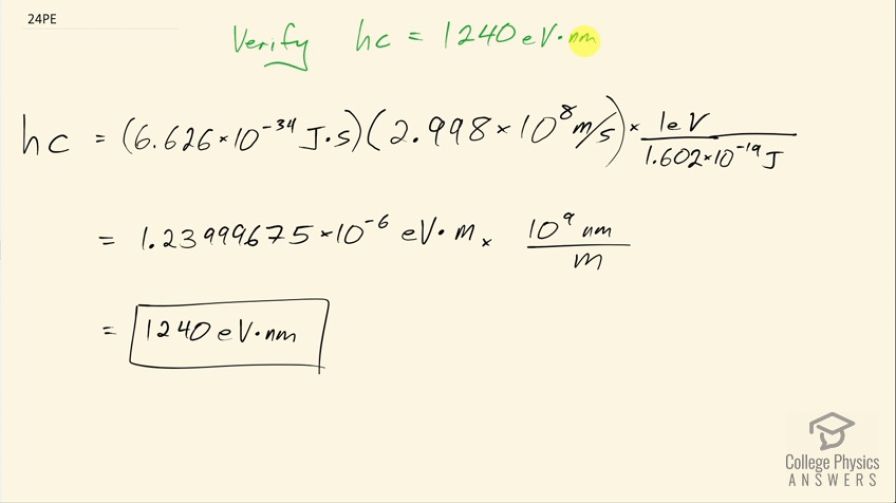 24PE
Verify hc = 1240 eV·nm
hc = (6.626×10⁻³⁴ J·s)(2.998×10⁸ m/s) × 1eV / 1.602×10⁻¹⁹ J
= 1.23999675×10⁻⁶ eV·m × 10⁹ nm / m
= 1240 eV·nm
College Physics
ANSWERS